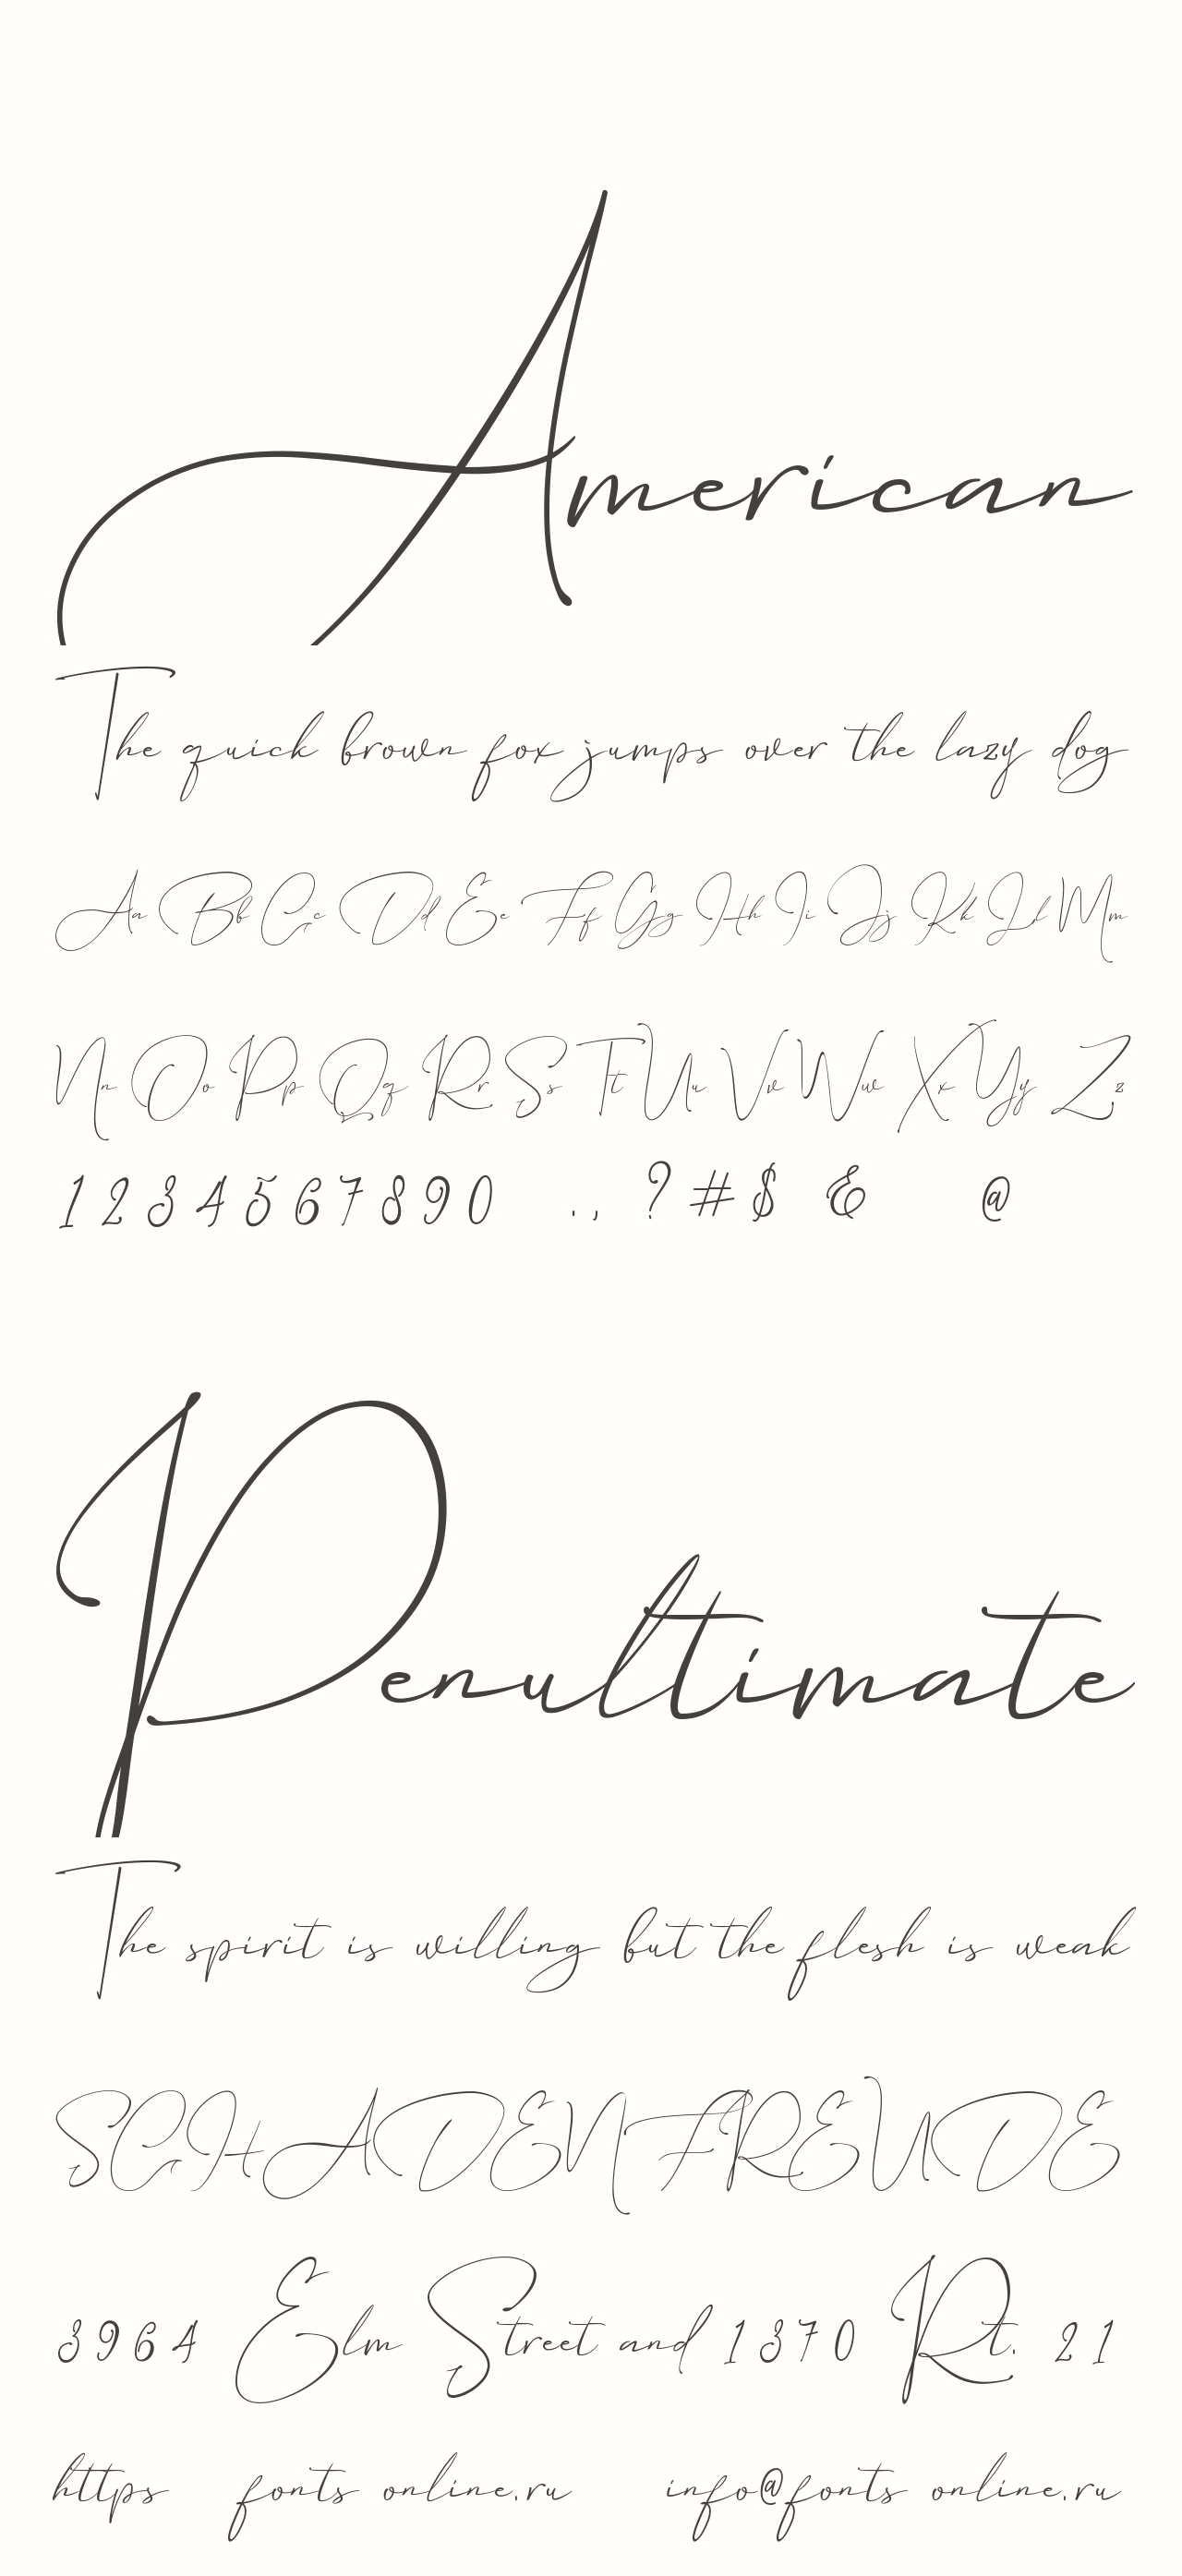 American
The quick brown fox jumps over the lazy dog
Aa Bb Cc Dd Ee Ff Gg Hh Ii Jj Kk Ll Mm
Nn Oo Pp Qq Rr Ss Tt Uu Vv Ww Xx Yy Zz
1 2 3 4 5 6 7 8 9 0 . , ? # $ & @
Penultimate
The spirit is willing but the flesh is weak
SCHADENFREUDE
3964 Elm Street and 1370 Rt. 21
https fonts online.ru info@fonts online.ru